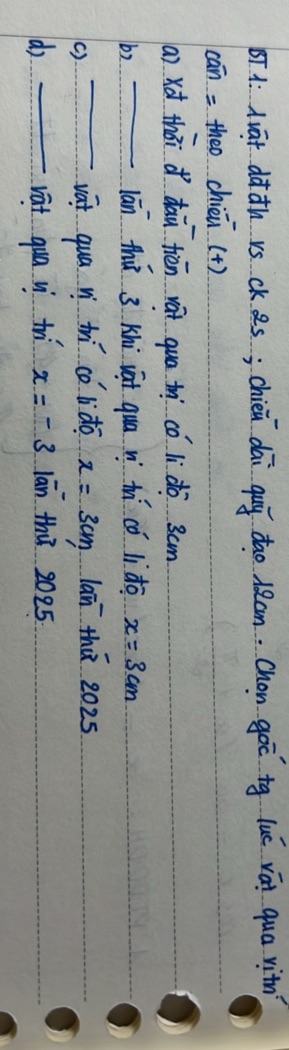 BT 1: 1 vật dđđh vs ck 2s; chiều dài quỹ đạo 12cm. Chọn gốc tg lúc vật qua vị trí
cân = theo chiều (+)
a) Xđ thời đ' đầu tiên vật qua trị có li độ 3cm
b) ——— lần thứ 3 khi vật qua vị trí có li độ x = 3cm
c) ——— vật qua vị trí có li độ x = 3cm lần thứ 2025
d) ——— vật qua vị trí x = -3 lần thứ 2025.